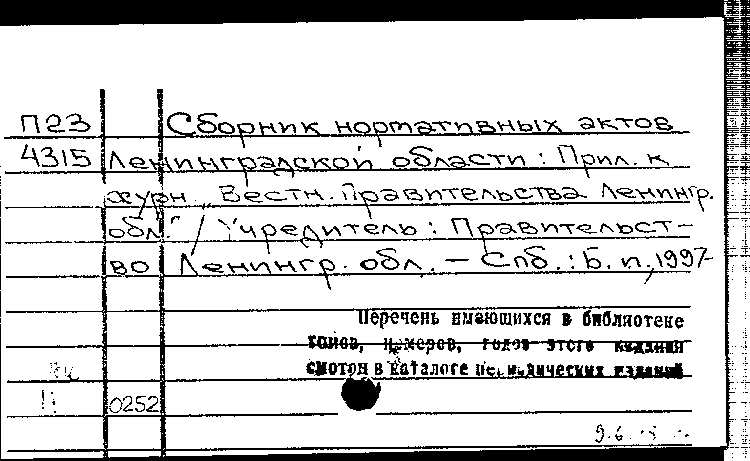 П23 Сборник нормативных актов
4315 Ленинградской области : Прил. к
журн „Вестн. Правительства Ленингр.
обл." / Учредитель : Правительст-
во Ленингр. обл. – Спб. : Б. и, 1997-
Перечень имеющихся в библиотеке
томов, номеров, годов этого издания
смотри в каталоге периодических изданий
0252